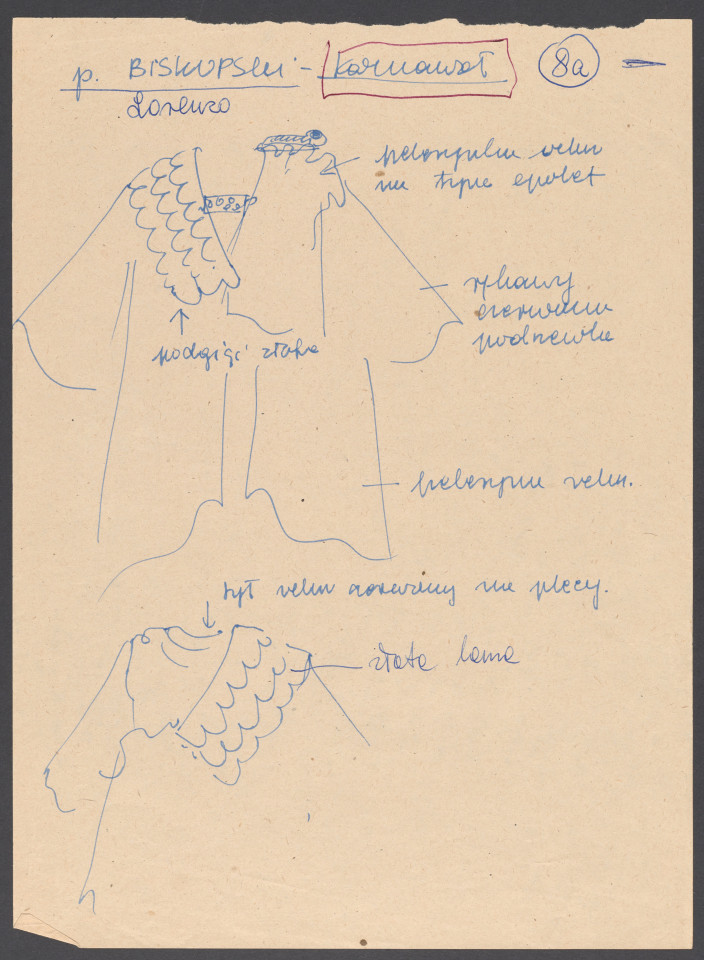 p. BISKUPSKI - Karnawał 8a
Lorenzo
pelerynka welur
na typie epolet
rękawy
czerwona
podszewka
podgięci złote
peleryna welur.
tył welur zarzucony na plecy.
złota lama